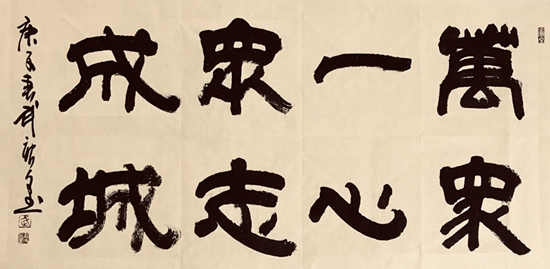 萬眾
一心
眾志
成城
庚子春武